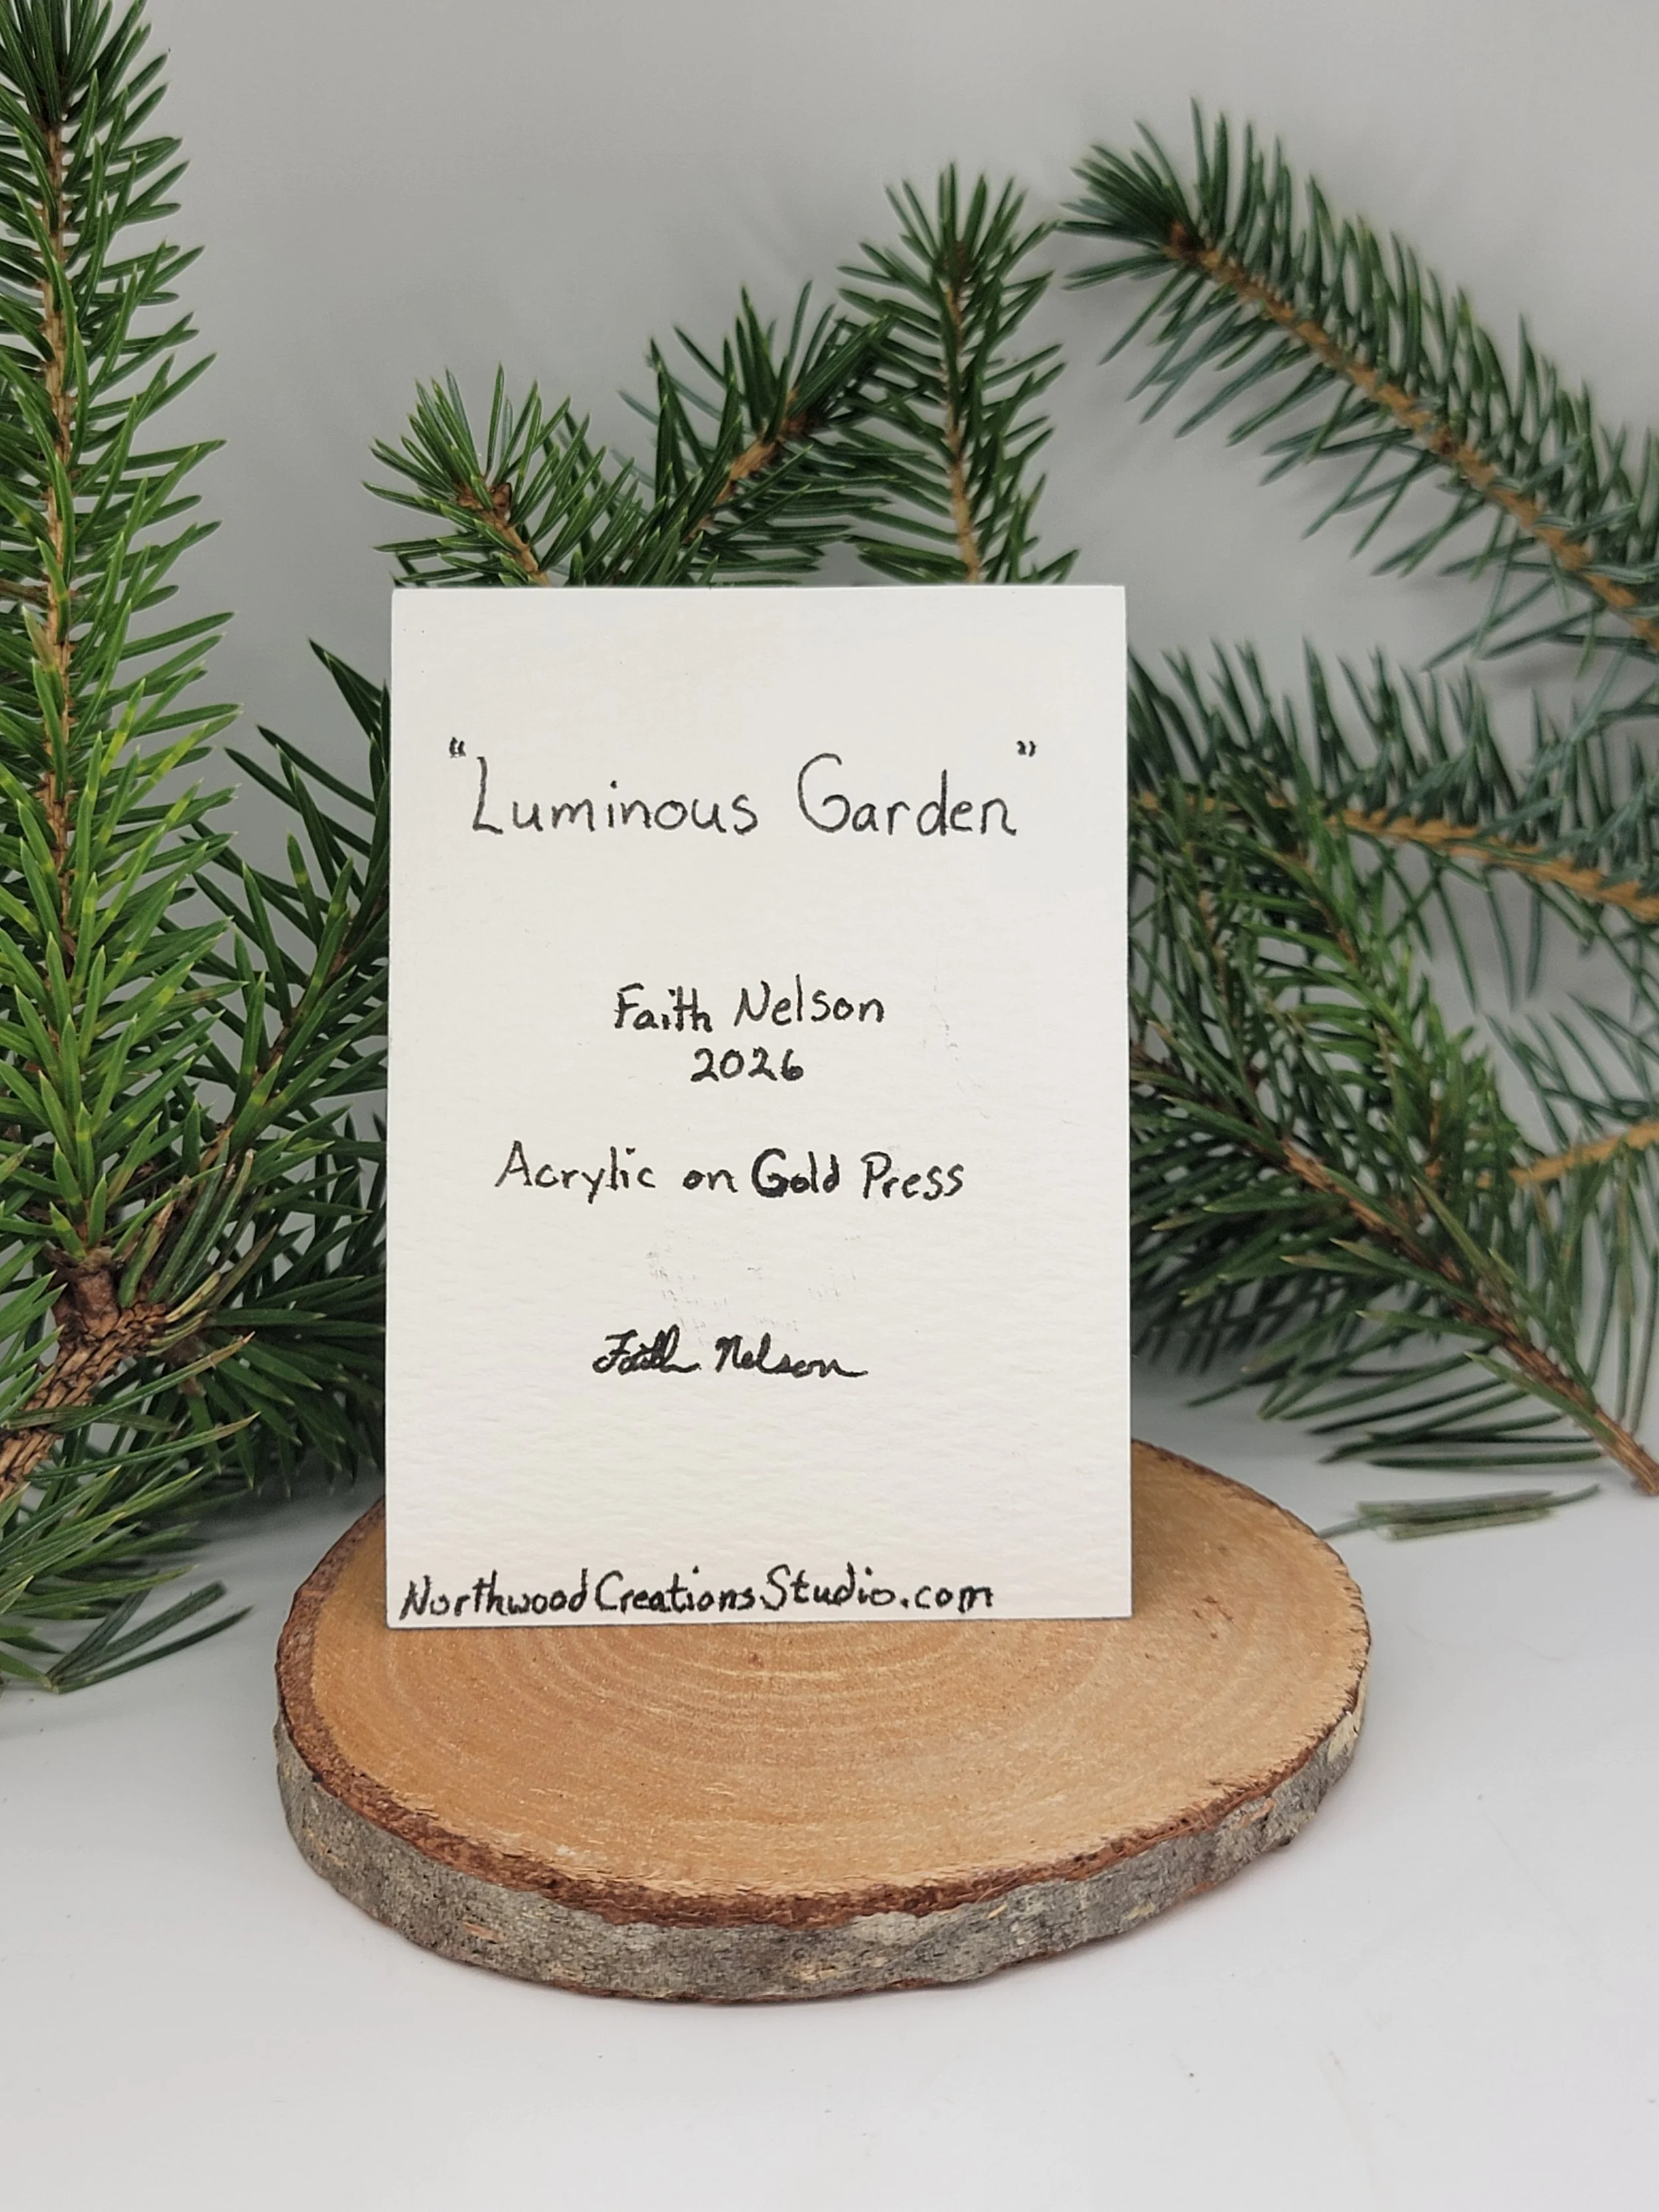 "Luminous Garden"
Faith Nelson
2026
Acrylic on Gold Press
Faith Nelson
NorthwoodCreationsStudio.com